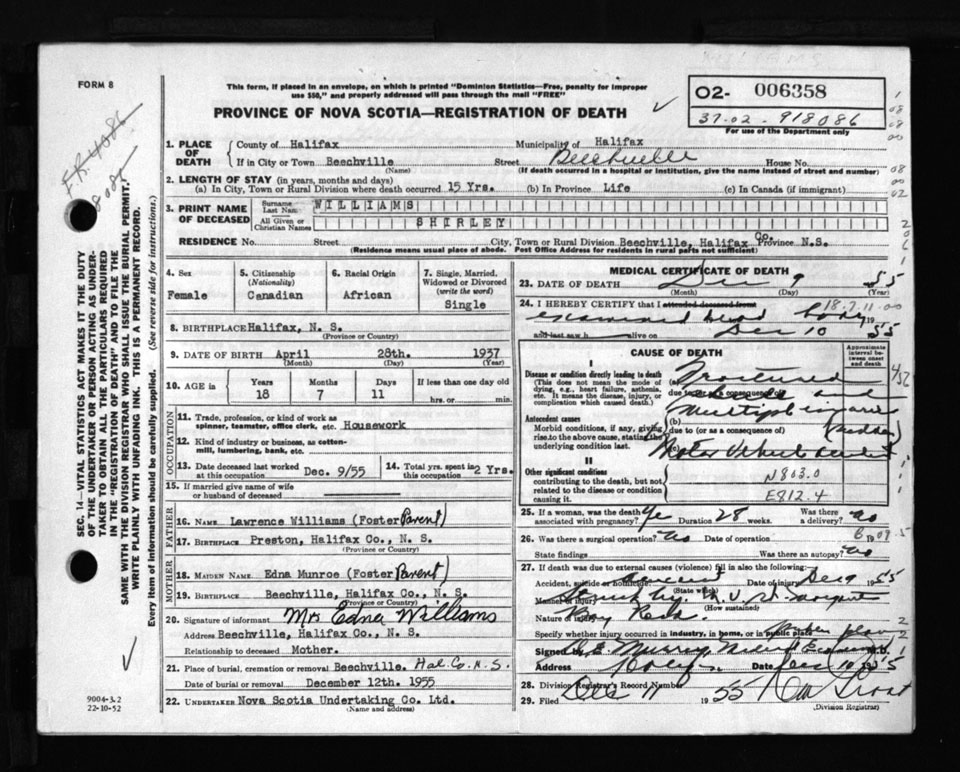 FORM 8
This form, if placed in an envelope, on which is printed "Dominion Statistics—Free, penalty for improper
use $50," and properly addressed will pass through the mail "FREE"
PROVINCE OF NOVA SCOTIA—REGISTRATION OF DEATH
O2- 006358
37-02-918086
For use of the Department only
F.R. 4
SEC. 14—VITAL STATISTICS ACT MAKES IT THE DUTY
OF THE UNDERTAKER OR PERSON ACTING AS UNDER-
TAKER TO OBTAIN ALL THE PARTICULARS REQUIRED
IN THE "REGISTRATION OF DEATH" AND TO FILE THE
SAME WITH THE DIVISION REGISTRAR WHO SHALL ISSUE THE BURIAL PERMIT.
WRITE PLAINLY WITH UNFADING INK. THIS IS A PERMANENT RECORD.
Every item of information should be carefully supplied. (See reverse side for instructions.)
1. PLACE OF DEATH
County of Halifax Municipality of Halifax
If in City or Town Beechville Street Beechville House No.
(Name) (If death occurred in a hospital or institution, give the name instead of street and number)
2. LENGTH OF STAY (in years, months and days)
(a) In City, Town or Rural Division where death occurred 15 Yrs. (b) In Province Life (c) In Canada (if immigrant)
3. PRINT NAME OF DECEASED
Surname Last Name WILLIAMS
All Given or Christian Names SHIRLEY
RESIDENCE No. Street City, Town or Rural Division Beechville, Halifax Co. Province N.S.
(Residence means usual place of abode. Post Office Address for residents in rural parts not sufficient)
4. Sex 5. Citizenship (Nationality) 6. Racial Origin 7. Single, Married, Widowed or Divorced (write the word)
Female Canadian African Single
8. BIRTHPLACE Halifax, N. S.
(Province or Country)
9. DATE OF BIRTH April 28th. 1937
(Month) (Day) (Year)
10. AGE in Years Months Days If less than one day old
18 7 11 hrs. or min.
OCCUPATION
11. Trade, profession, or kind of work as
spinner, teamster, office clerk, etc. Housework
12. Kind of industry or business, as cotton-
mill, lumbering, bank, etc.
13. Date deceased last worked at this occupation Dec. 9/55 14. Total yrs. spent in this occupation 2 Yrs.
15. If married give name of wife
or husband of deceased
FATHER
16. NAME Lawrence Williams (Foster Parent)
17. BIRTHPLACE Preston, Halifax Co., N. S.
(Province or Country)
MOTHER
18. MAIDEN NAME Edna Munroe (Foster Parent)
19. BIRTHPLACE Beechville, Halifax Co., N. S.
(Province or Country)
20. Signature of informant Mrs Edna Williams
Address Beechville, Halifax Co., N. S.
Relationship to deceased Mother.
21. Place of burial, cremation or removal Beechville. Hal. Co. N. S.
Date of burial or removal December 12th. 1955
22. UNDERTAKER Nova Scotia Undertaking Co. Ltd.
(Name and address)
9004-3.2
22-10-52
MEDICAL CERTIFICATE OF DEATH
23. DATE OF DEATH Dec 9 55
(Month) (Day) (Year)
24. I HEREBY CERTIFY that I attended deceased from
examined dead body
and last saw h alive on Dec 10 55
CAUSE OF DEATH
Approximate interval between onset and death
I
Disease or condition directly leading to death
(This does not mean the mode of
dying, e.g., heart failure, asthenia,
etc. It means the disease, injury, or
complication which caused death.)
Fractured
due to (or as a consequence of)
Antecedent causes
Morbid conditions, if any, giving
rise to the above cause, stating the
underlying condition last.
multiple injuries
(b)
due to (or as a consequence of) (sudden)
(c) Motor Vehicle accident
II
Other significant conditions
contributing to the death, but not
related to the disease or condition
causing it.
N803.0
E812.4
25. If a woman, was the death associated with pregnancy? Duration 28 weeks. Was there a delivery? No
26. Was there a surgical operation? No Date of operation
State findings Was there an autopsy? No
27. If death was due to external causes (violence) fill in also the following:
Accident, suicide or homicide? Accident Date of injury Dec 9 1955
(State which)
Manner of injury Struck by
(How sustained)
Nature of injury
Specify whether injury occurred in industry, in home, or in public place
Signed by Murray Medical Examiner M.D.
Address Date Dec 10 1955
28. Division Registrar's Record Number
29. Filed Dec 11 1955
(Division Registrar)